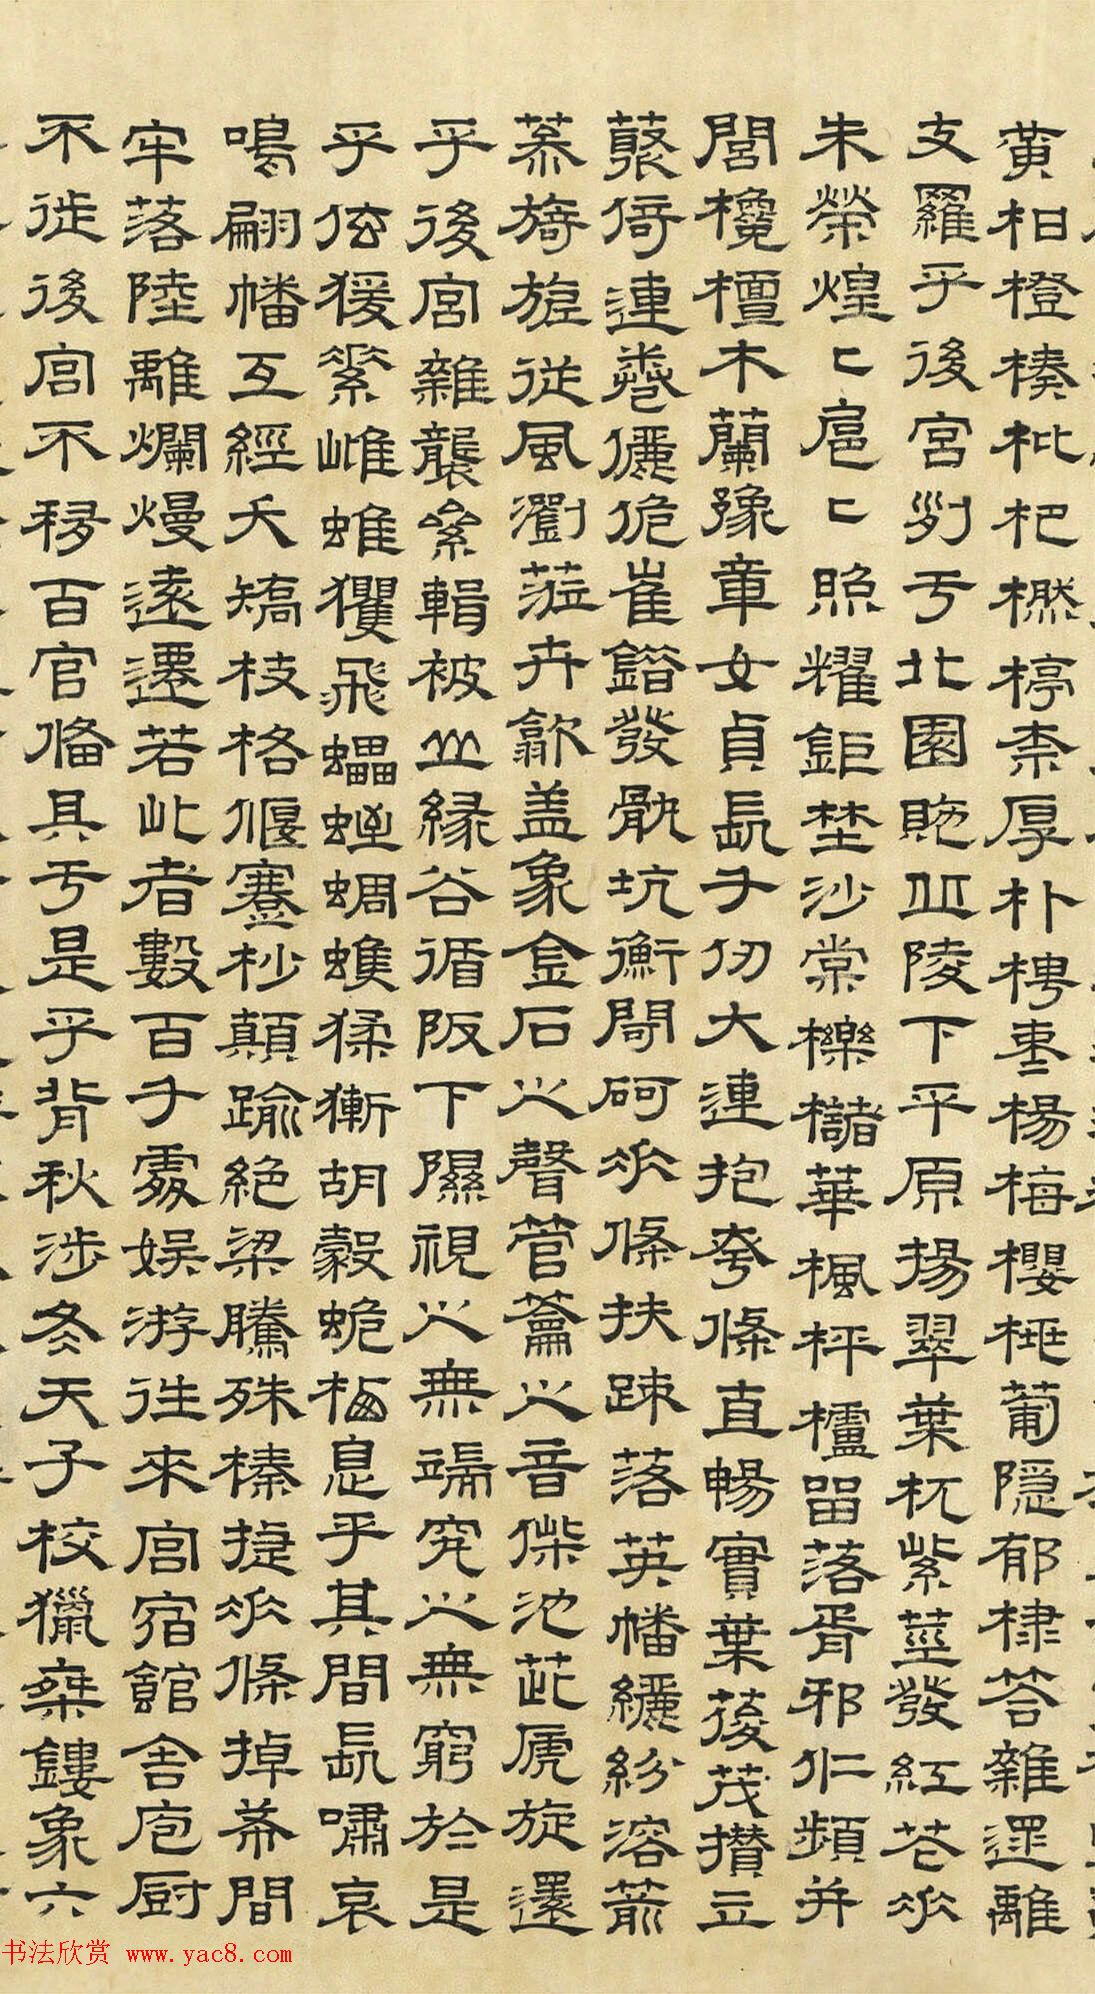 黃柏橙楱枇杷橪楟柰厚朴梬棗楊梅櫻桃葡隐郁棣荅雜遝離
支羅乎後宮列于北園貤丘陵下平原揚翠葉杌紫莖發紅花垂
朱榮煌匕扈匕照耀鉅埜沙棠櫟櫧華楓枰櫨留落胥邪仁頻并
閭欃檀木蘭豫章女貞長千仞大連抱夸條直暢實葉葰茂攢立
叢倚連卷儷佹崔錯發骫坑衡閜砢垂條扶疎落英幡纚紛溶萷
蔘旖旎從風瀏蒞卉歙盖象金石之聲管籥之音傑池茈虒旋還
乎後宮雜襲絫輯被山緣谷循阪下隰視之無端究之無窮於是
乎玄猨素雌蜼玃飛蠝蛭蜩蠗猱獑胡豰蛫栖息乎其間長嘯哀
鳴翩幡互經夭矯枝格偃蹇杪顛踰絕梁騰殊榛捷垂條掉希間
牢落陸離爛熳遠遷若此者數百千處娱游往來宮宿館舍庖厨
不徙後宮不移百官俻具于是乎背秋涉冬天子校獵乘鏤象六
书法欣赏 www.yac8.com